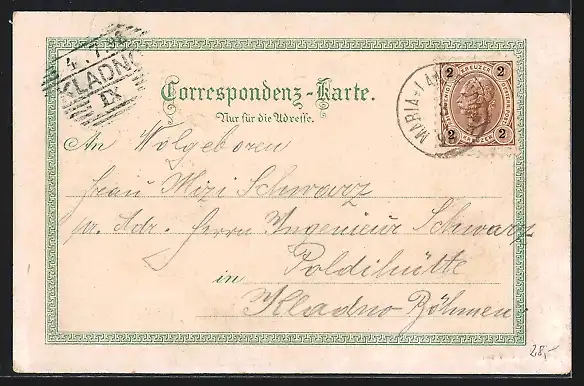 4. 7. 98
KLADNO
IX
Correspondenz-Karte.
Nur für die Adresse.
MARIA-LA
2 KREUZER 2
2 KREUZER 2
An Wolgeboren
Frau Mizi Schwarz
pr. Adr. Herrn Ingenieur Schwarz
Poldihütte
in
Kladno Böhmen
28,-